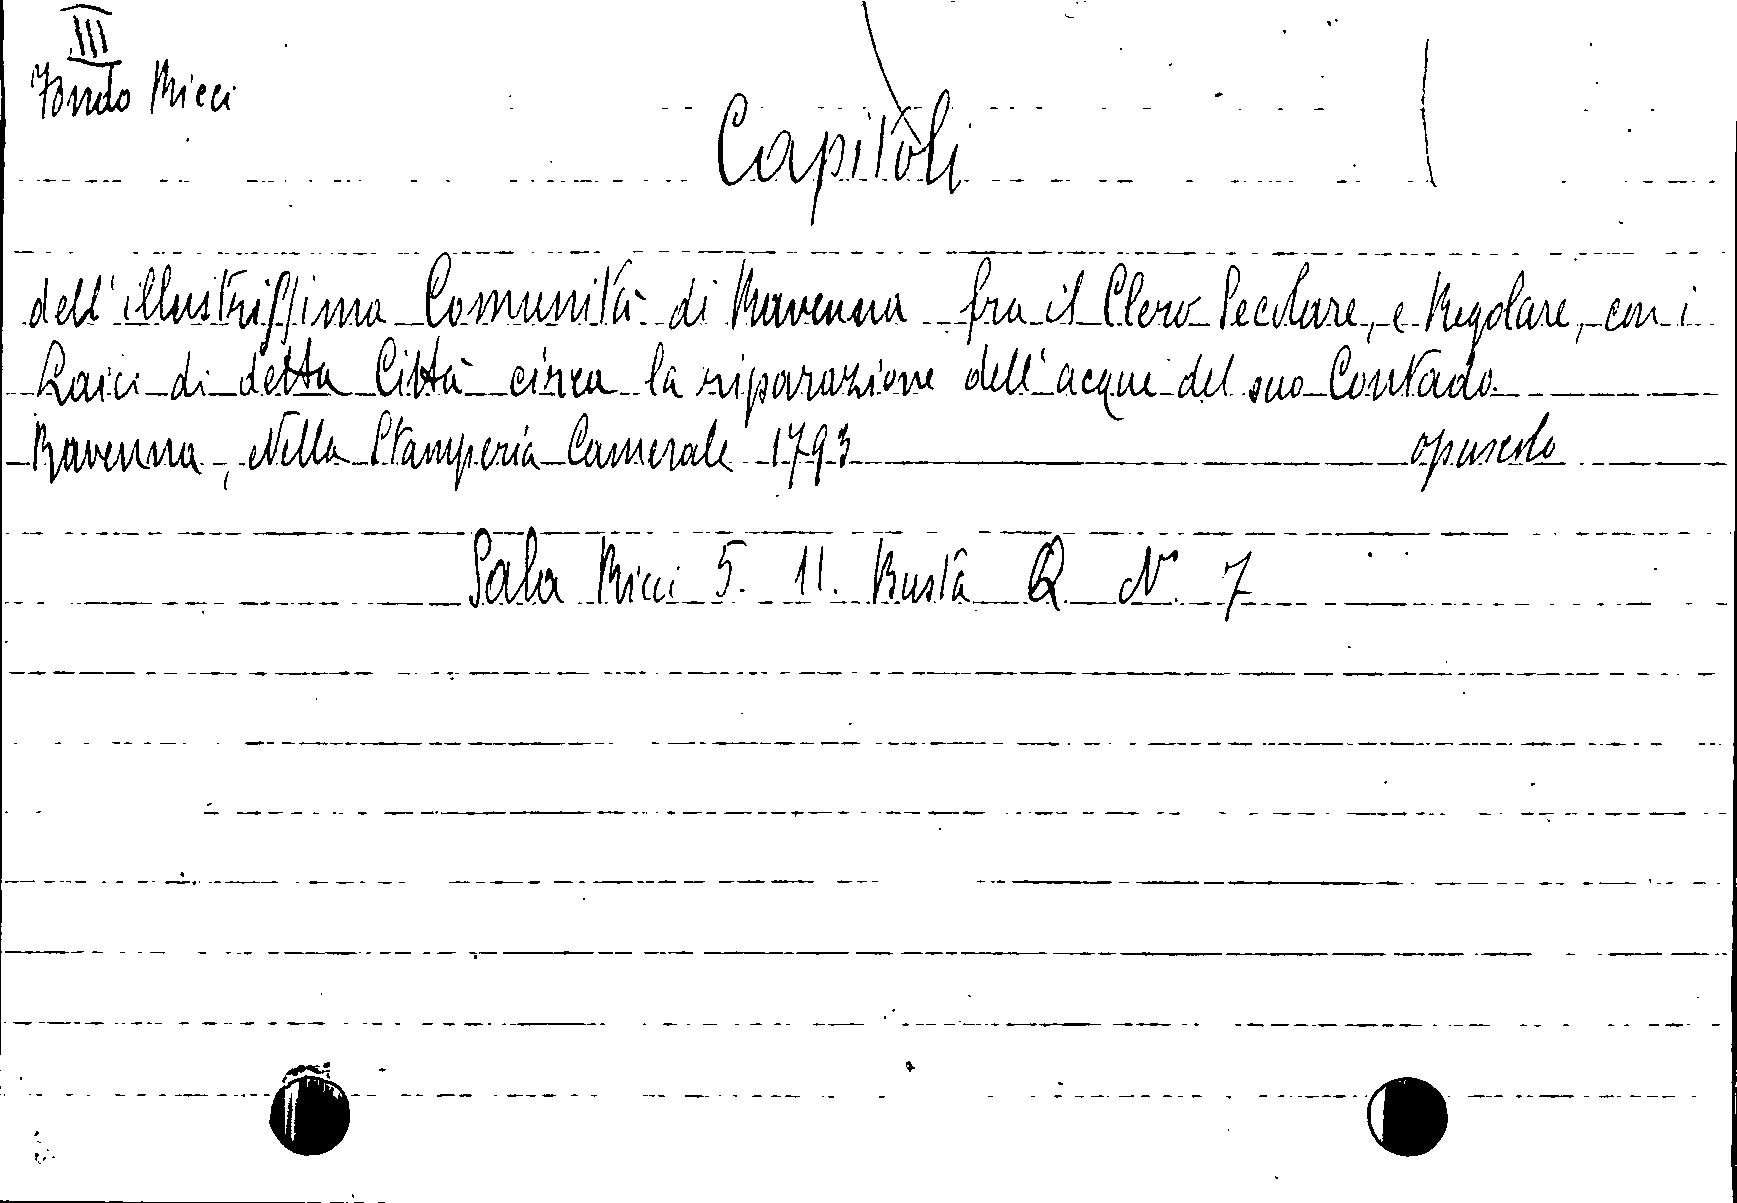 III
Fondo Ricci
Capitoli
dell'illustrissima Comunità di Ravenna fra il Clero Secolare, e Regolare, con i
Laici di detta Città circa la riparazione dell'acque del suo Contado.
Ravenna, Nella Stamperia Camerale 1793 opuscolo
Sala Ricci 5. 11. Busta Q N. 7